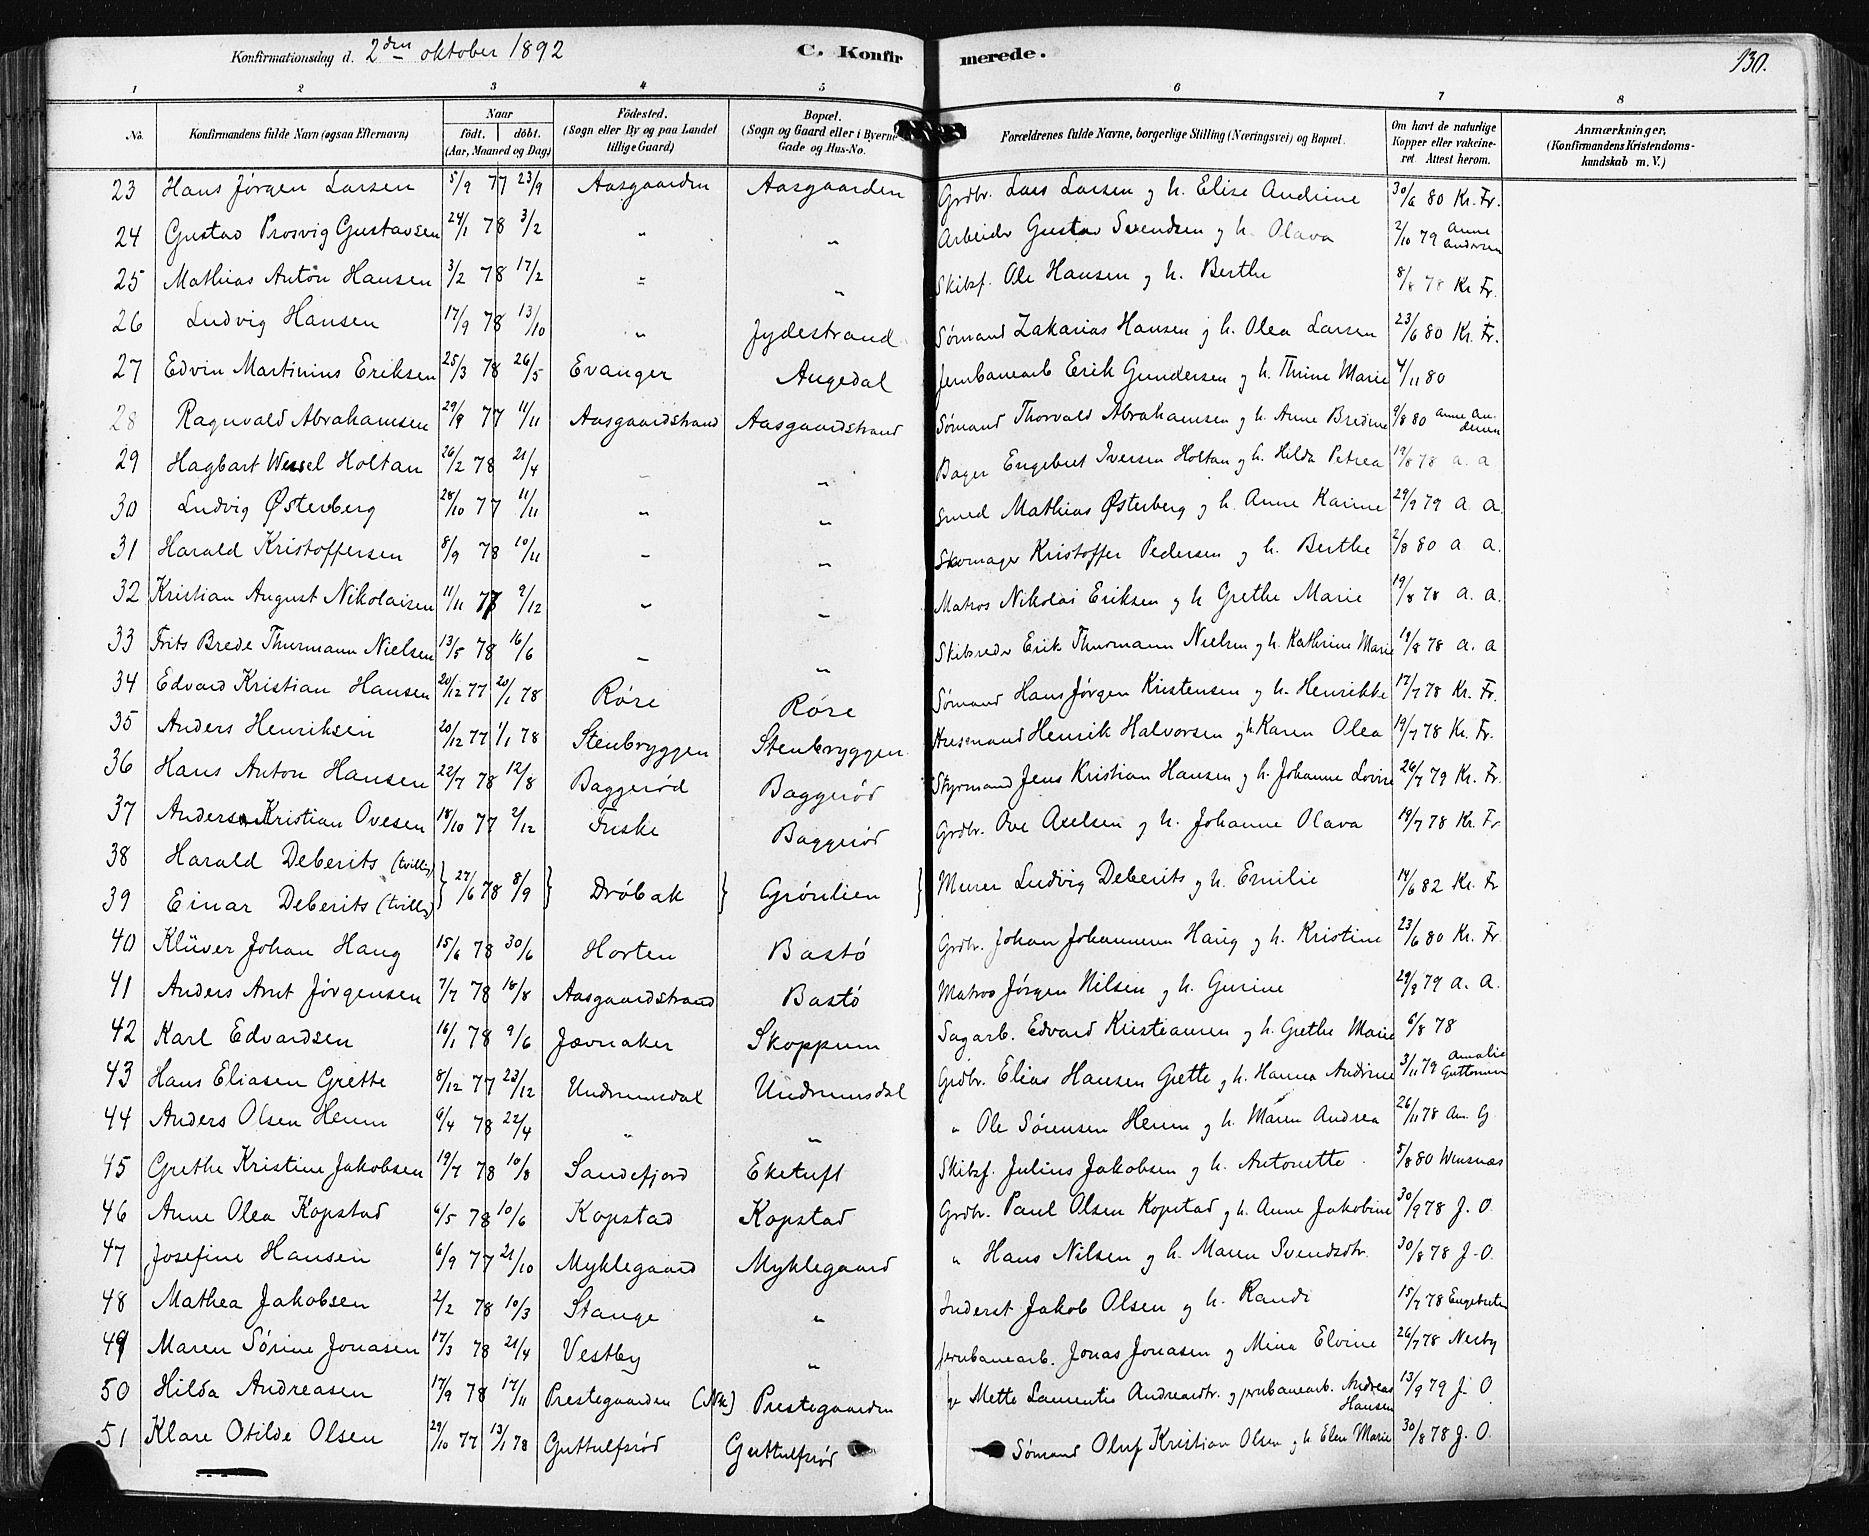 Konfirmationsdag d. 2den oktober 1892 C. Konfirmerede. 130.
1 2 3 4 5 6 7 8
No. Konfirmandens fulde Navn (ogsaa Efternavn) Naar födt. döbt. (Aar, Maaned og Dag) Födested. (Sogn eller By og paa Landet tillige Gaard) Bopæl. (Sogn og Gaard eller i Byerne Gade og Hus-No. Forældrenes fulde Navne, borgerlige Stilling (Næringsvei) og Bopæl. Om havt de naturlige Kopper eller vakcineret. Attest herom. Anmærkninger. (Konfirmandens Kristendomskundskab m. V.)
23 Hans Jørgen Larsen 5/9 77 23/9 Aasgaarden Aasgaarden Grdbr. Lars Larsen og h. Elise Andrine 30/6 80 Kr. Fr.
24 Gustav Prosvig Gustavsen 24/1 78 3/2 " " Arbeider Gustav Svendsen og h. Olava 2/10 79 Anne Andersen
25 Mathias Anton Hansen 3/2 78 17/2 " " Skibsf. Ole Hansen og h. Berthe 8/8 78 Kr. Fr.
26 Ludvig Hansen 17/9 78 13/10 " Jydestrand Sømand Zakarias Hansen og h. Olea Larsen 23/6 80 Kr. Fr.
27 Edvin Martinius Eriksen 25/3 78 26/5 Evanger Augedal Jernbanearb Erik Gundersen og h. Thrine Marie 4/11 80
28 Ragnvald Abrahamsen 29/9 77 11/11 Aasgaardstrand Aasgaardstrand Sømand Thorvald Abrahamsen og h. Anne Bredine 9/8 80 Anne Andersen
29 Hagbart Wessel Holtan 26/2 78 21/4 " " Bager Engebret Iversen Holtan og h. Hilda Petrea 19/8 78 a. a
30 Ludvig Østerberg 28/10 77 11/11 " " Smed Mathias Østerberg og h. Anne Karine 29/9 79 a. a.
31 Harald Kristoffersen 8/9 78 10/11 " " Skomager Kristoffer Pedersen og h. Berthe 2/8 80 a a.
32 Kristian August Nikolaisen 11/11 77 9/12 " " Matros Nikolai Eriksen og h Grethe Marie 19/8 78 a. a.
33 Frits Brede Thurmann Nielsen 13/5 78 16/6 " " Skibsreder Erik Thurmann Nielsen og h. Kathrine Marie 19/8 78 a. a
34 Edvard Kristian Hansen 20/12 77 20/1 78 Røre Røre Sømand Hans Jørgen Kristensen og h. Henrikke 17/7 78 Kr. Fr.
35 Anders Henriksen 20/12 77 1/1 78 Stenbryggen Stenbryggen Husmand Henrik Halvorsen og h. Karen Olea 19/7 78 Kr. Fr.
36 Hans Anton Hansen 22/7 78 12/8 Baggerød Baggerød Styrmand Jens Kristian Hansen og h. Johanne Lovise 26/7 79 Kr. Fr.
37 Anders Kristian Ovesen 18/10 77 2/12 Fuske Baggerød Grdbr. Ove Axelsen og h. Johanne Olava 19/7 78 Kr. Fr
38 Harald Deberits (tvilling)
39 Einar Deberits (tvilling) } 27/6 78 8/9 } Drøbak } Grønlien } Murer Ludvig Deberits og h. Emilie 14/6 82 Kr. Fr
40 Klüver Johan Haug 15/6 78 30/6 Horten Bastö Grdbr. Johan Johannesen Haug og h. Kristine 23/6 80 Kr. Fr.
41 Anders Arnt Jørgensen 7/7 78 18/8 Aasgaardstrand Bastö Matros Jørgen Nilsen og h. Gurine 29/8 79 a. a.
42 Karl Edvardsen 16/1 78 9/6 Jævnaker Skoppum Sagarb. Edvard Kristiansen og h. Grethe Marie 6/8 78
43 Hans Eliasen Grette 8/12 77 23/12 Undrumsdal Undrumsdal Grdbr. Elias Hansen Grette og h. Hanna Andrine 3/11 79 Amalie Guttormsen
44 Anders Olsen Heum 6/4 78 22/4 " " " Ole Sørensen Heum og h. Maren Andrea 26/11 78 Am. G.
45 Grethe Kristine Jakobsen 19/7 78 10/8 Sandefjord Eketuft Skibsf. Julius Jakobsen og h. Antonette. 5/8 80 Wensnæs
46 Anne Olea Kopstad 6/5 78 10/6 Kopstad Kopstad Grdbr. Paul Olsen Kopstad og h. Anne Jakobine 30/9 78 J. O.
47 Josefine Hansen 6/9 77 21/10 Myklegaard Myklegaard " Hans Nilsen og h. Maren Svendsdtr. 30/8 78 J. O.
48 Mathea Jakobsen 2/2 78 10/3 Stange " Inderst Jakob Olsen og h. Randi 15/7 78 Engebretsen
49 Maren Sørine Jonasen 17/3 78 21/4 Vestby " Jernbanearb. Jonas Jonasen og Mina Elvine 26/7 78 Nesby
50 Hilda Andreasen 17/9 78 17/11 Prestegaarden (Nk.) Prestegaarden Mette Laurentie Andreasdtr. og jernbanearb. Andreas Hansen 13/9 79 J. O.
51 Klare Otilde Olsen 29/10 77 13/1 78 Guttulfsrød Guttulfsrød Sømand Oluf Kristian Olsen og h. Elen Marie 30/8 78 J. O.